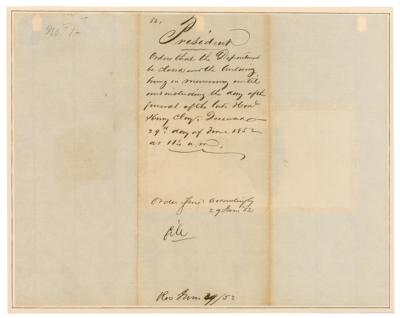 No. 1-
President
Orders that the Department
be closed and the building
hung in mourning until
and including the day of the
funeral of the late Honl.
Henry Clay, Deceased
29th day of June 1852
at 11¼ a.m.
Order given accordingly
29 June 52
File
June 29/52